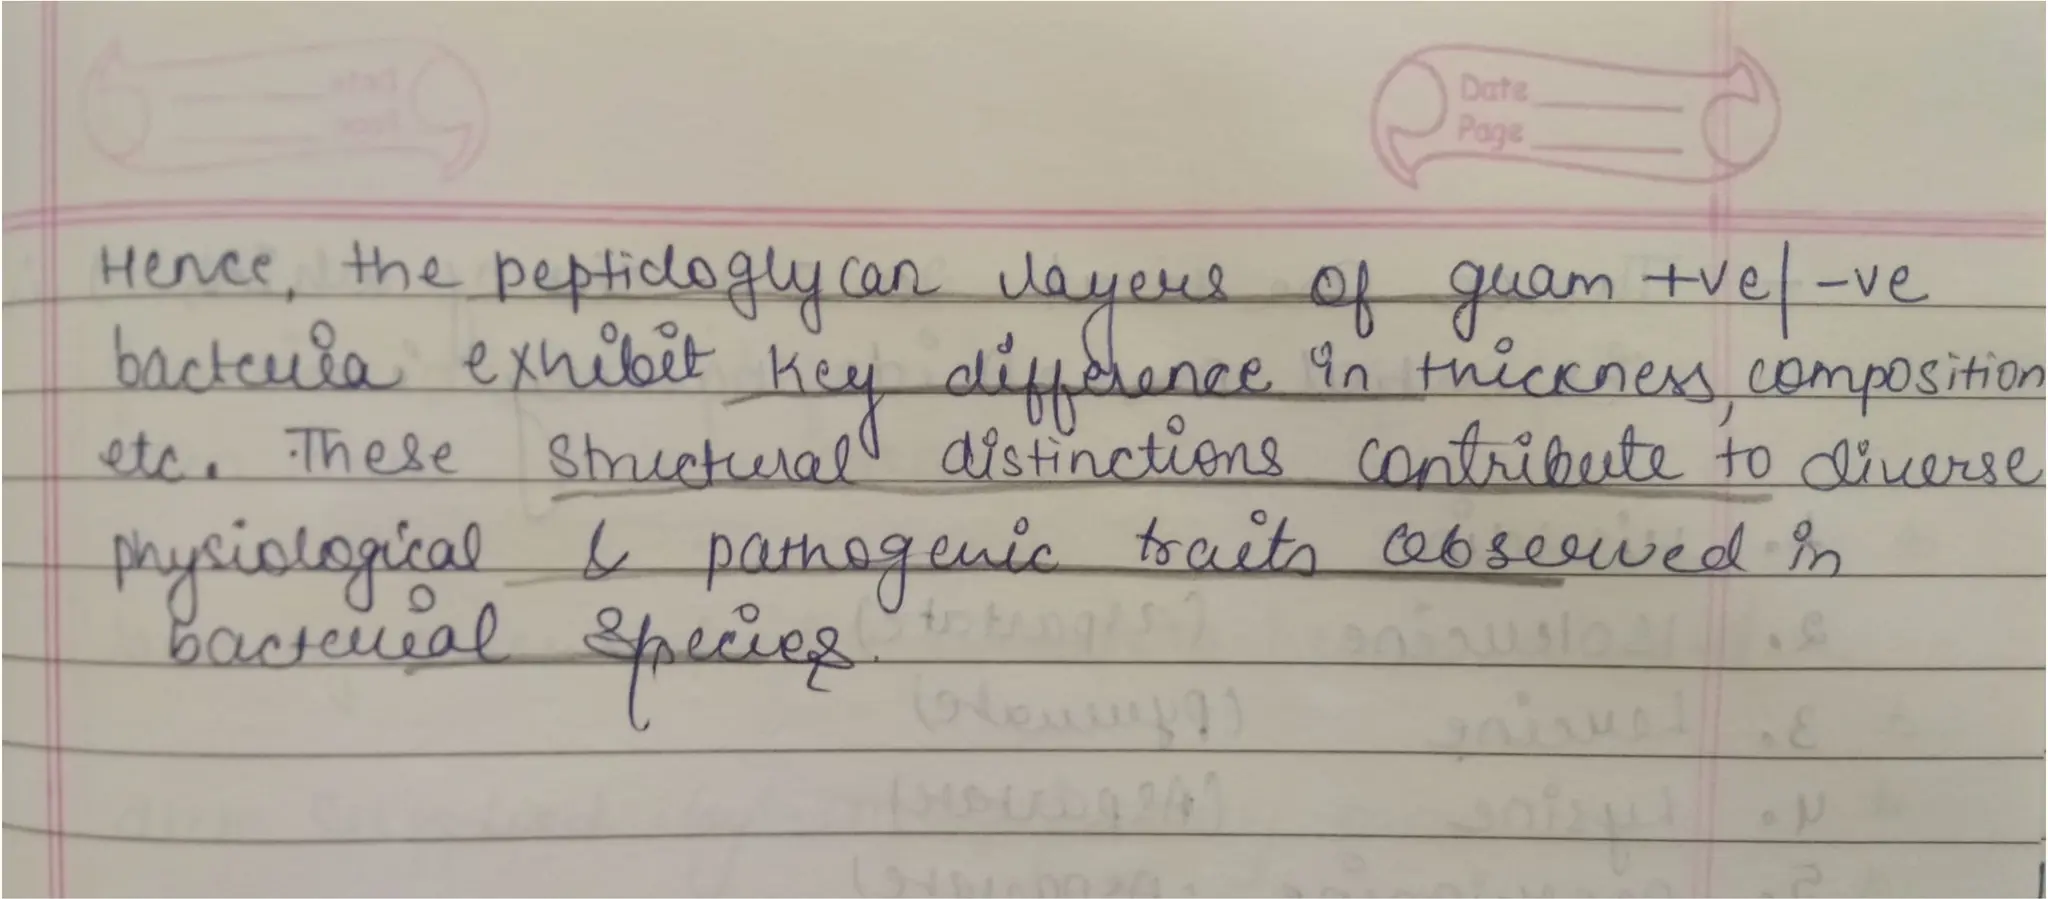 Date
Page
Hence, the peptidoglycan layers of gram +ve/-ve
bacteria exhibit key difference in thickness, composition
etc. These structural distinctions contribute to diverse
physiological & pathogenic traits observed in
bacterial species.